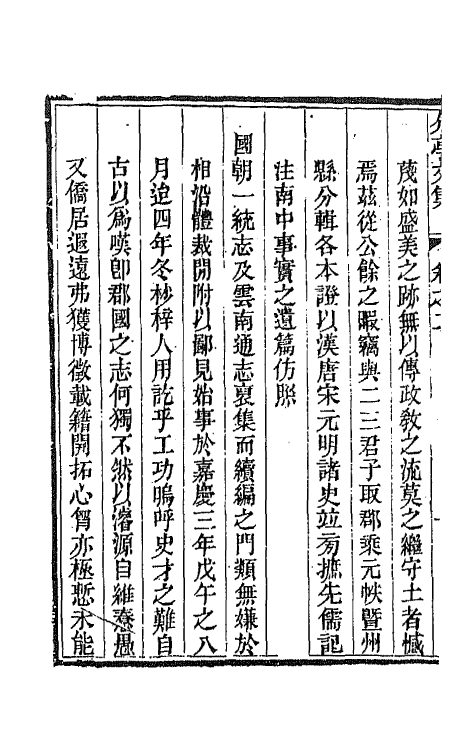 蔑如盛美之跡無以傳政敎之流莫之繼守土者憾
焉茲從公餘之暇竊與二三君子取郡乘元帙曁州
縣分輯各本證以漢唐宋元明諸史並旁摭先儒記
注南中事實之遺篇仿照
國朝一統志及雲南通志裒集而續編之門類無嫌於
相沿體裁開附以鄙見始事於嘉慶三年戊午之八
月迨四年冬杪梓人用訖乎工功嗚呼史才之難自
古以爲嘆卽郡國之志何獨不然以濬源自維憃愚
又僑居遐遠弗獲博徵載籍開拓心胷亦極慙未能